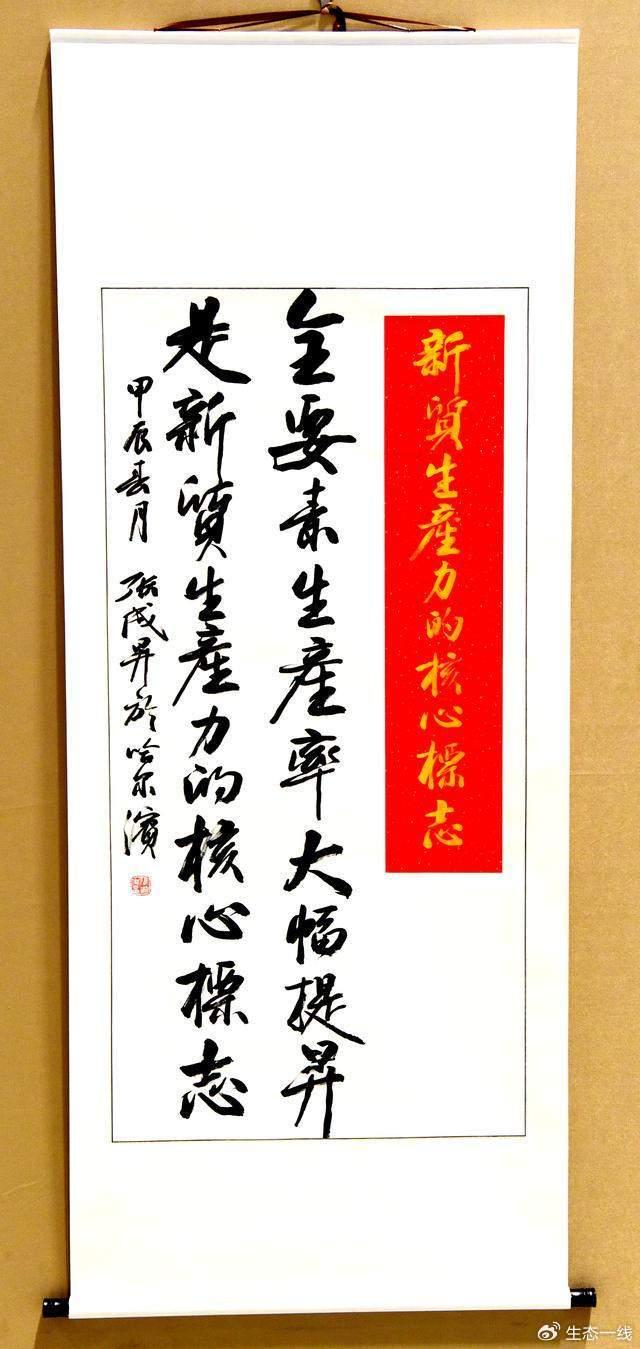 新質生産力的核心標志
全要素生産率大幅提昇
是新質生産力的核心標志
甲辰春月 張成昇於哈尔濱
生态一线